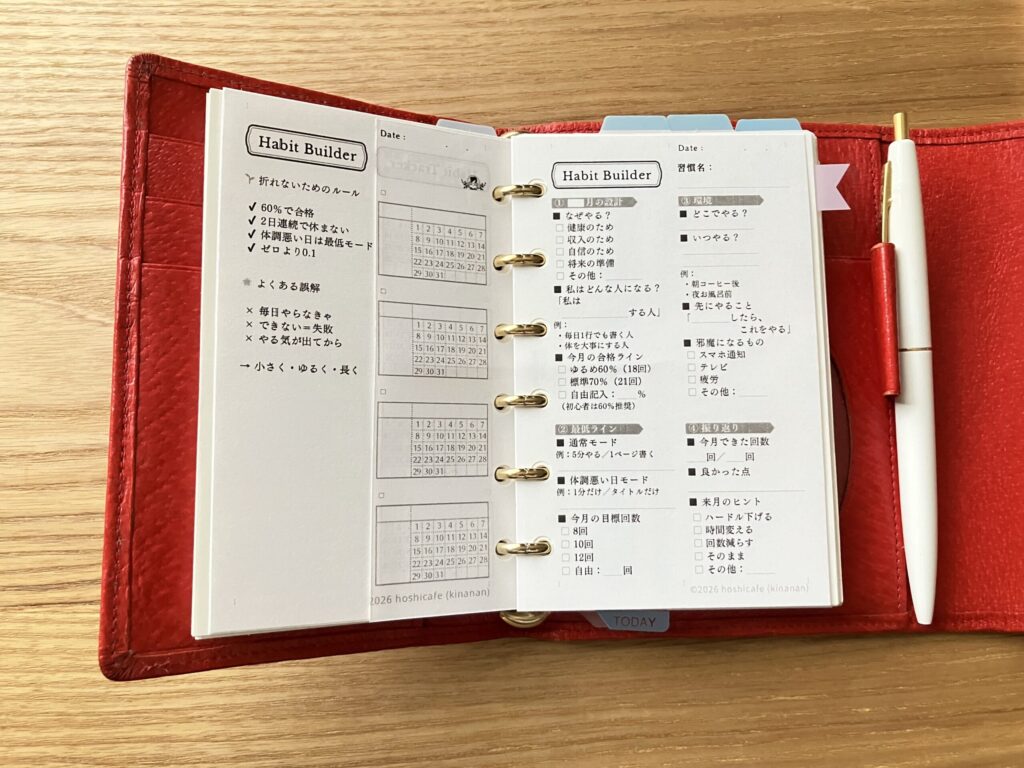 Habit Builder
折れないためのルール
✓ 60%で合格
✓ 2日連続で休まない
✓ 体調悪い日は最低モード
✓ ゼロより0.1
よくある誤解
× 毎日やらなきゃ
× できない＝失敗
× やる気が出てから
→ 小さく・ゆるく・長く
Date :
1 2 3 4 5 6 7
8 9 10 11 12 13 14
15 16 17 18 19 20 21
22 23 24 25 26 27 28
29 30 31
1 2 3 4 5 6 7
8 9 10 11 12 13 14
15 16 17 18 19 20 21
22 23 24 25 26 27 28
29 30 31
1 2 3 4 5 6 7
8 9 10 11 12 13 14
15 16 17 18 19 20 21
22 23 24 25 26 27 28
29 30 31
1 2 3 4 5 6 7
8 9 10 11 12 13 14
15 16 17 18 19 20 21
22 23 24 25 26 27 28
29 30 31
2026 hoshicafe (kinanan)
Habit Builder
Date :
習慣名：
① 月の設計
■ なぜやる？
□ 健康のため
□ 収入のため
□ 自信のため
□ 将来の準備
□ その他：____
■ 私はどんな人になる？
「私は
する人」
例：
・毎日1行でも書く人
・体を大事にする人
■ 今月の合格ライン
□ ゆるめ60%（18回）
□ 標準70%（21回）
□ 自由記入：___%
（初心者は60%推奨）
② 最低ライン
■ 通常モード
例：5分やる／1ページ書く
■ 体調悪い日モード
例：1分だけ／タイトルだけ
■ 今月の目標回数
□ 8回
□ 10回
□ 12回
□ 自由：___回
③ 環境
■ どこでやる？
■ いつやる？
例：
・朝コーヒー後
・夜お風呂前
■ 先にやること
「______したら、
これをやる」
■ 邪魔になるもの
□ スマホ通知
□ テレビ
□ 疲労
□ その他：____
④ 振り返り
■ 今月できた回数
___回／___回
■ 良かった点
■ 来月のヒント
□ ハードル下げる
□ 時間変える
□ 回数減らす
□ そのまま
□ その他：____
©2026 hoshicafe (kinanan)
TODAY